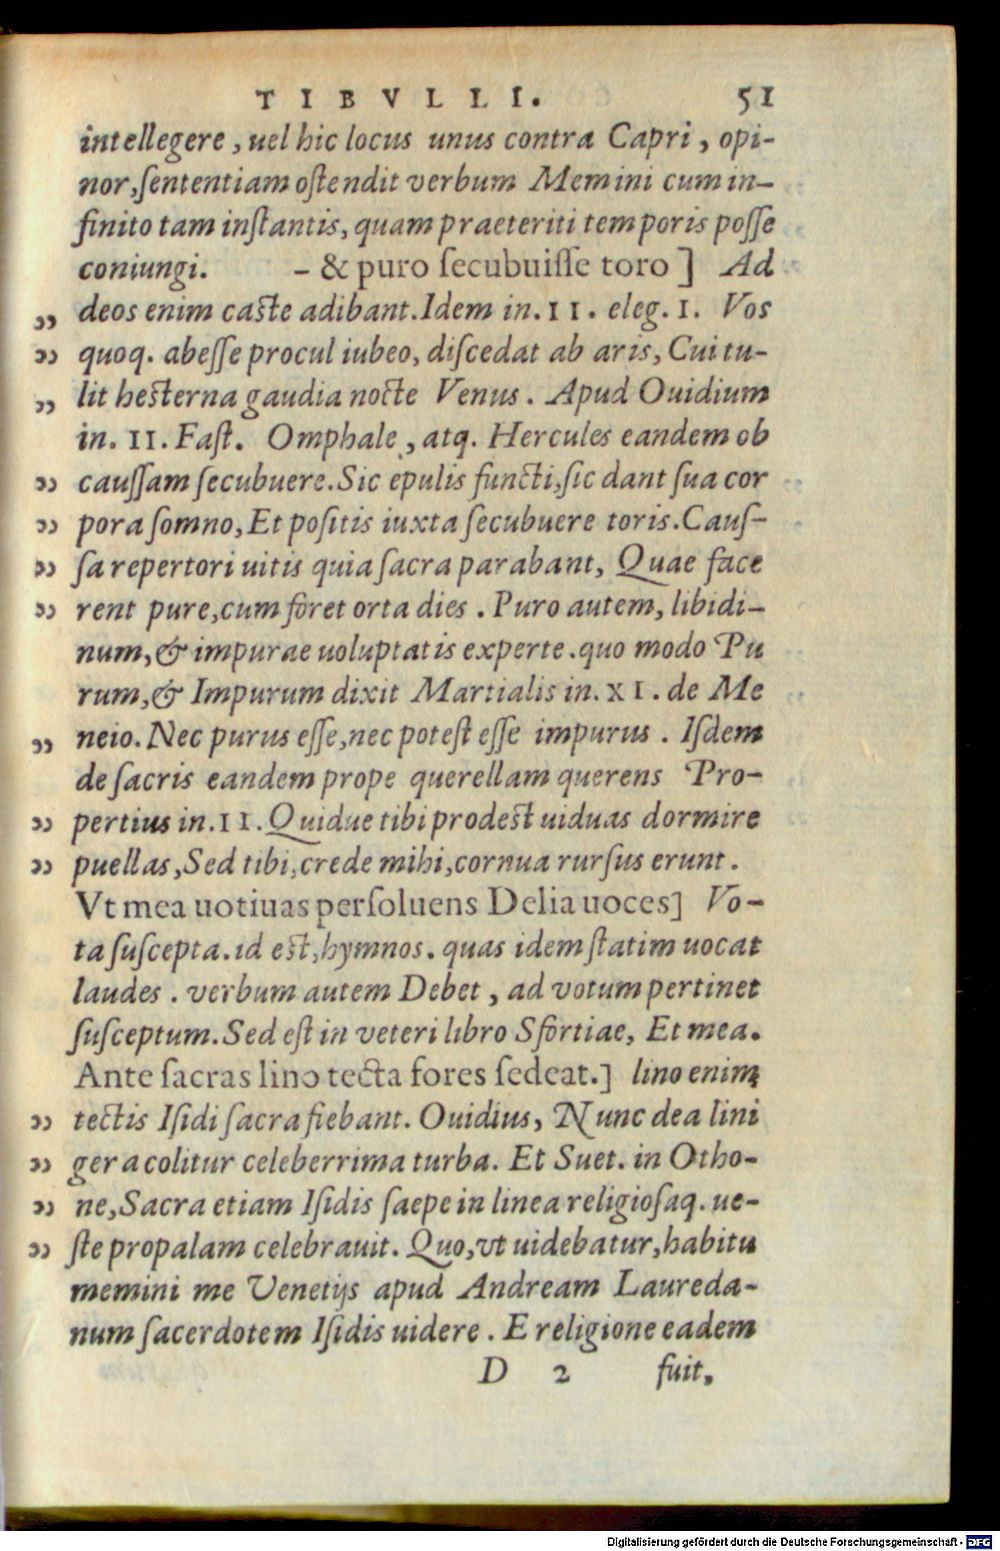 TIBVLLI. 51
intellegere, uel hic locus unus contra Capri, opi-
nor, sententiam ostendit verbum Memini cum in-
finito tam instantis, quam praeteriti temporis posse
coniungi. - & puro secubuisse toro ] Ad
„ deos enim caste adibant. Idem in. II. eleg. I. Vos
„ quoq. abesse procul iubeo, discedat ab aris, Cui tu-
„ lit hesterna gaudia nocte Venus. Apud Ouidium
in. II. Fast. Omphale, atq. Hercules eandem ob
„ caussam secubuere. Sic epulis functi, sic dant sua cor
„ pora somno, Et positis iuxta secubuere toris. Caus-
„ sa repertori uitis quia sacra parabant, Quae face
„ rent pure, cum foret orta dies. Puro autem, libidi-
num, & impurae uoluptatis experte. quo modo Pu
rum, & Impurum dixit Martialis in. XI. de Me
„ neio. Nec purus esse, nec potest esse impurus. Isdem
de sacris eandem prope querellam querens Pro-
„ pertius in. II. Quidue tibi prodest uiduas dormire
„ puellas, Sed tibi, crede mihi, cornua rursus erunt.
Vt mea uotiuas persoluens Delia uoces] Vo-
ta suscepta. id est, hymnos. quas idem statim uocat
laudes. verbum autem Debet, ad votum pertinet
susceptum. Sed est in veteri libro Sfortiae, Et mea.
Ante sacras lino tecta fores sedeat.] lino enim
„ tectis Isidi sacra fiebant. Ouidius, Nunc dea lini
„ gera colitur celeberrima turba. Et Suet. in Otho-
„ ne, Sacra etiam Isidis saepe in linea religiosaq. ue-
„ ste propalam celebrauit. Quo, vt uidebatur, habitu
memini me Venetijs apud Andream Laureda-
num sacerdotem Isidis uidere. E religione eadem
D 2 fuit,
Digitalisierung gefördert durch die Deutsche Forschungsgemeinschaft - DFG